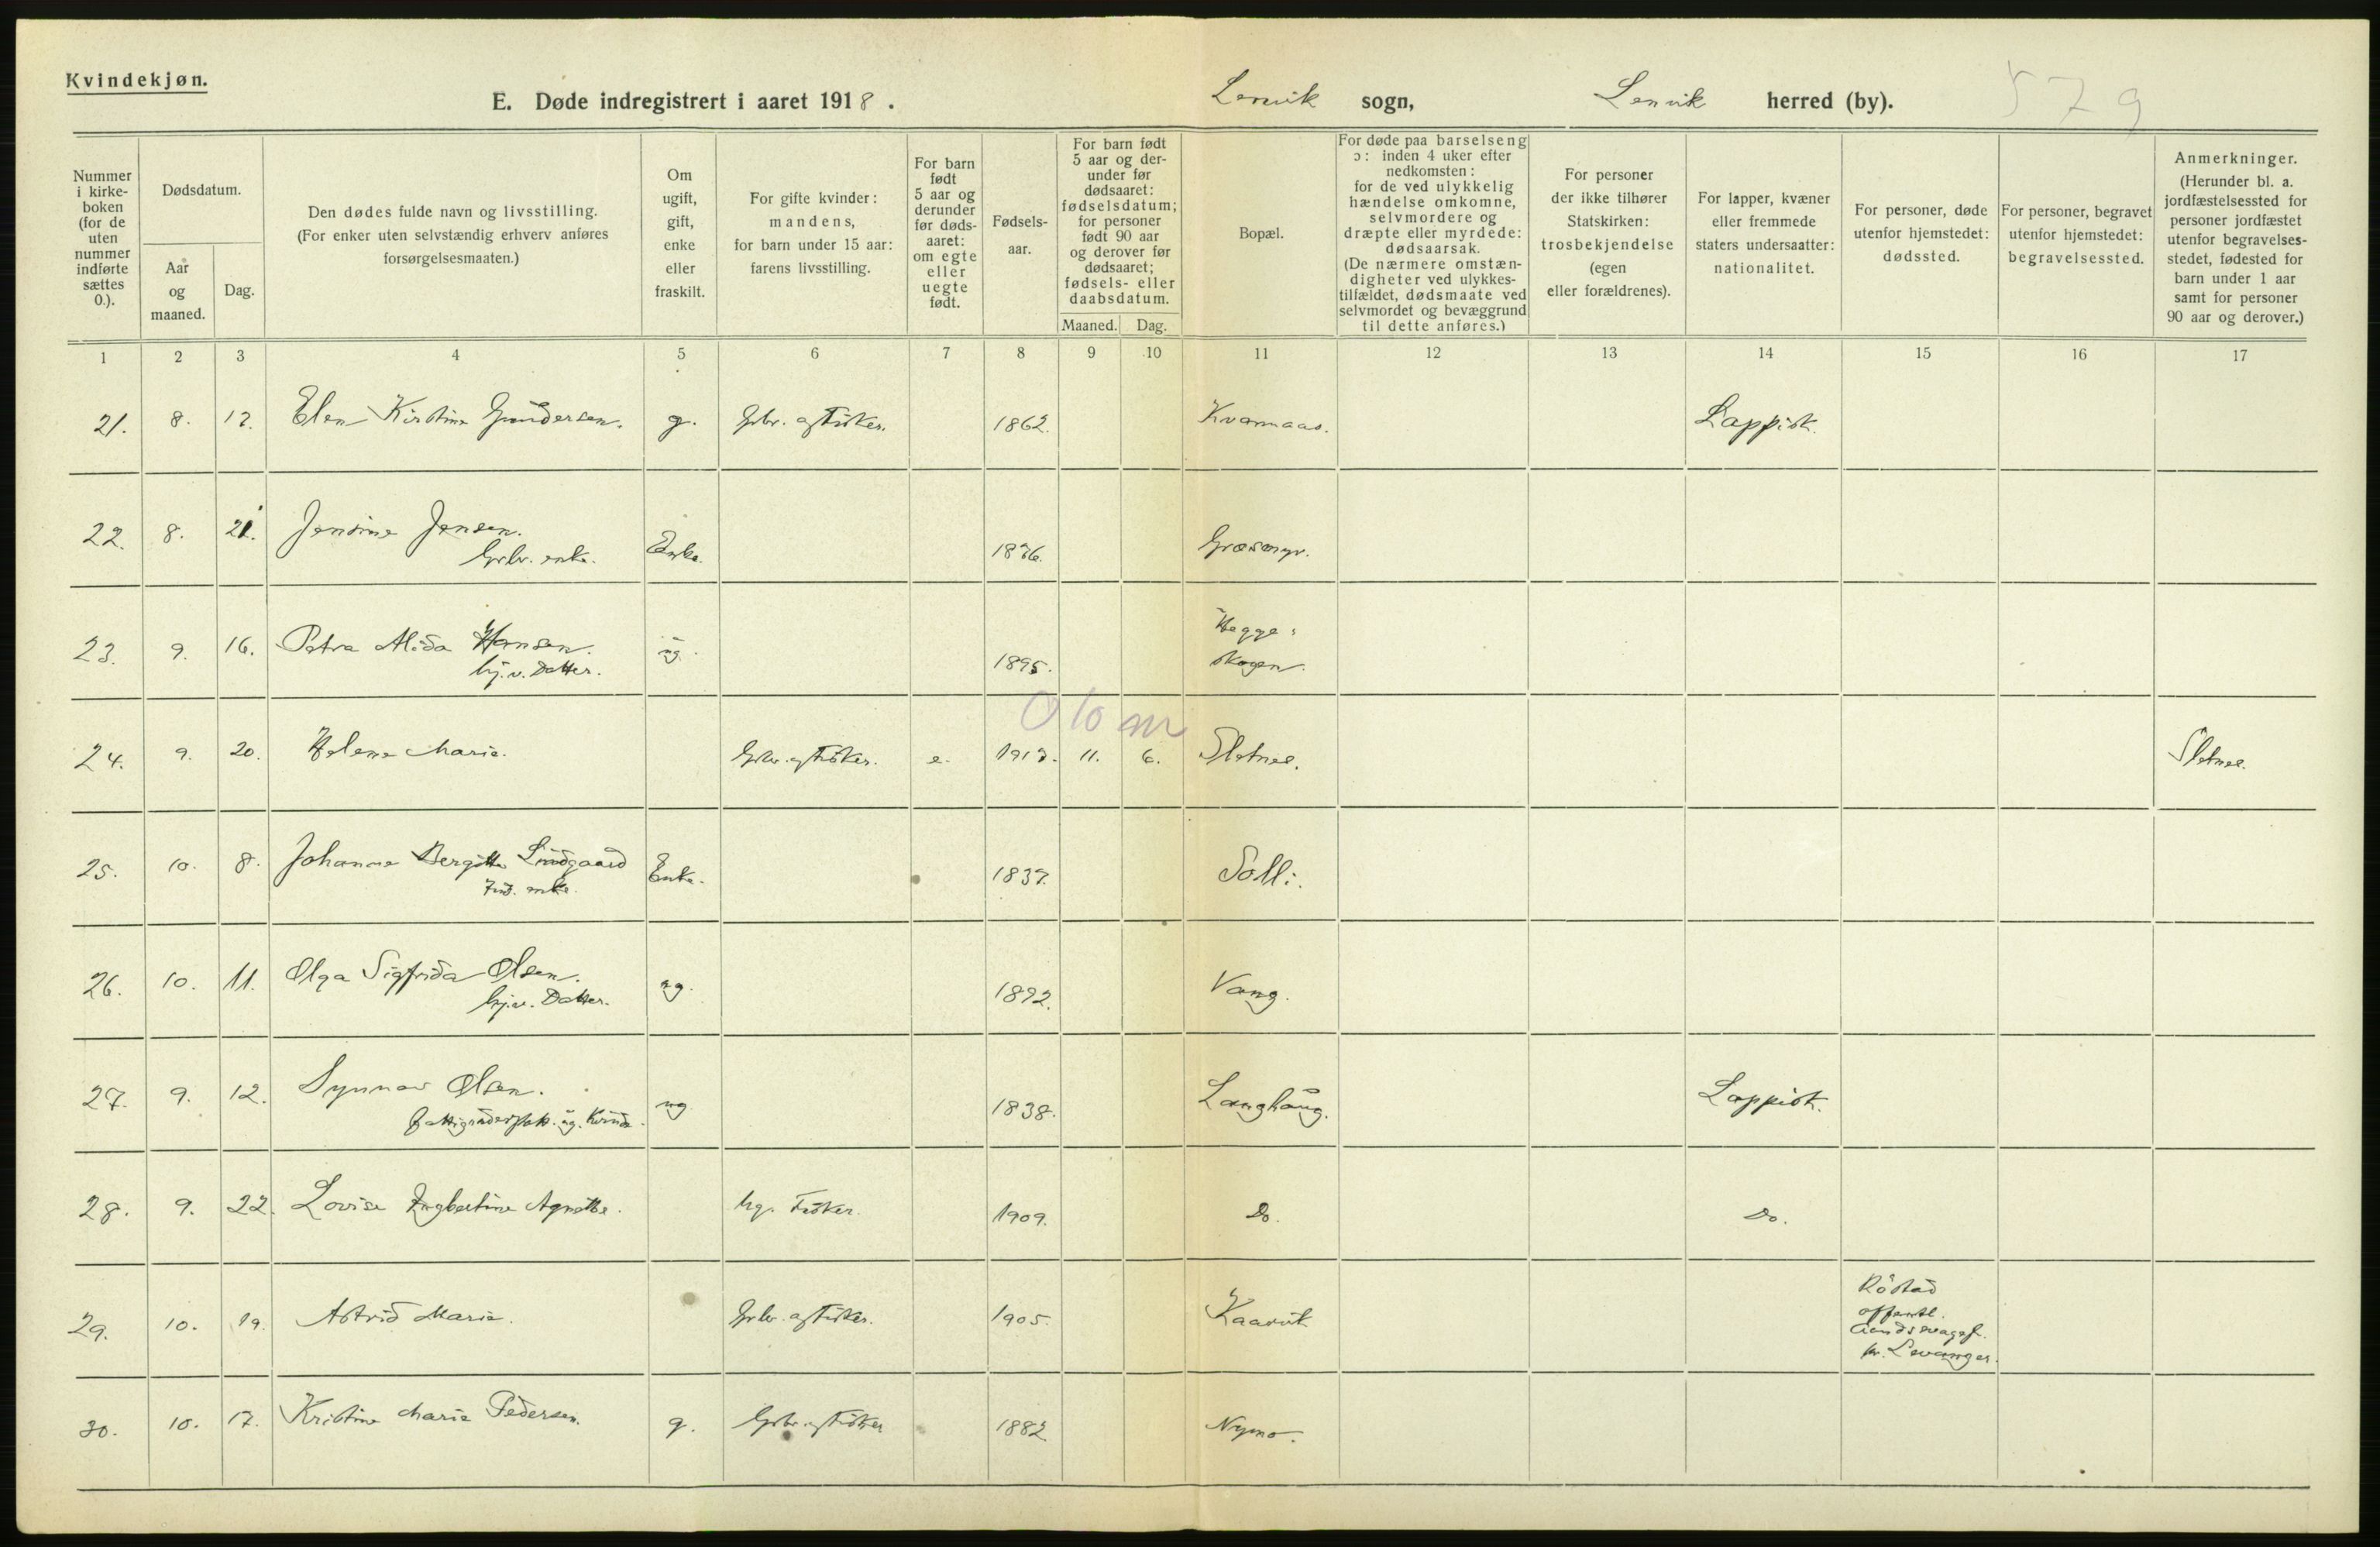 Kvindekjøn.
E. Døde indregistrert i aaret 1918.
Lenvik sogn, Lenvik herred (by). 579
Nummer i kirke- boken (for de uten nummer indførte sættes 0.).
Dødsdatum.
Aar og maaned.
Dag.
Den dødes fulde navn og livsstilling.
(For enker uten selvstændig erhverv anføres
forsørgelsesmaaten.)
Om ugift, gift, enke eller fraskilt.
For gifte kvinder: mandens, for barn under 15 aar: farens livsstilling.
For barn født 5 aar og derunder før døds- aaret: om egte eller uegte født.
Fødsels- aar.
For barn født 5 aar og der- under før dødsaaret: fødselsdatum; for personer født 90 aar og derover før dødsaaret; fødsels- eller daabsdatum.
Maaned. Dag.
Bopæl.
For døde paa barselseng ɔ: inden 4 uker efter nedkomsten: for de ved ulykkelig hændelse omkomne, selvmordere og dræpte eller myrdede: dødsaarsak. (De nærmere omstæn- digheter ved ulykkes- tilfældet, dødsmaate ved selvmordet og bevæggrund til dette anføres.)
For personer der ikke tilhører Statskirken: trosbekjendelse (egen eller forældrenes).
For lapper, kvæner eller fremmede staters undersaatter: nationalitet.
For personer, døde utenfor hjemstedet: dødssted.
For personer, begravet utenfor hjemstedet: begravelsessted.
Anmerkninger. (Herunder bl. a. jordfæstelsessted for personer jordfæstet utenfor begravelses- stedet, fødested for barn under 1 aar samt for personer 90 aar og derover.)
1 2 3 4 5 6 7 8 9 10 11 12 13 14 15 16 17
21. 8. 12. Elen Kirstine Gundersen. g. Gbr. og Fisker. 1862. Kvannaas. Lappisk.
22. 8. 21. Jensine Jensen. Enke. Græsmyr.
Gbr. enke.
23. 9. 16. Petra Alida Hansen. ug. 1895. Hegge-
hj.v. Datter. skogen.
0 10 m
24. 9. 20. Helene Marie. Gbr. og Fisker. e. 11. 6. Sletnes. Sletnes.
25. 10. 8. Johanne Bergitte Lindgaard Enke. 1837. Solli.
enke.
26. 10. 11. Olga Sigfrida Olsen. ug. 1892. Vang.
hj.v. Datter.
27. 9. 12. Synnøv Olsen. ug 1838. Langhaug. Lappisk.
Fattigunderstøtt. ug. Kvinde.
28. 9. 22. Lovise Ingbertine Agnethe. Fisker. 1909. Do. Do.
29. 10. 19. Astrid Marie. Gbr. og Fisker. 1905. Kaarvik Röstad
offentl.
Aandssvagesk.
pr. Levanger.
30. 10. 17. Kristine Marie Pedersen. g. Gbr. og Fisker 1882 Nymo.